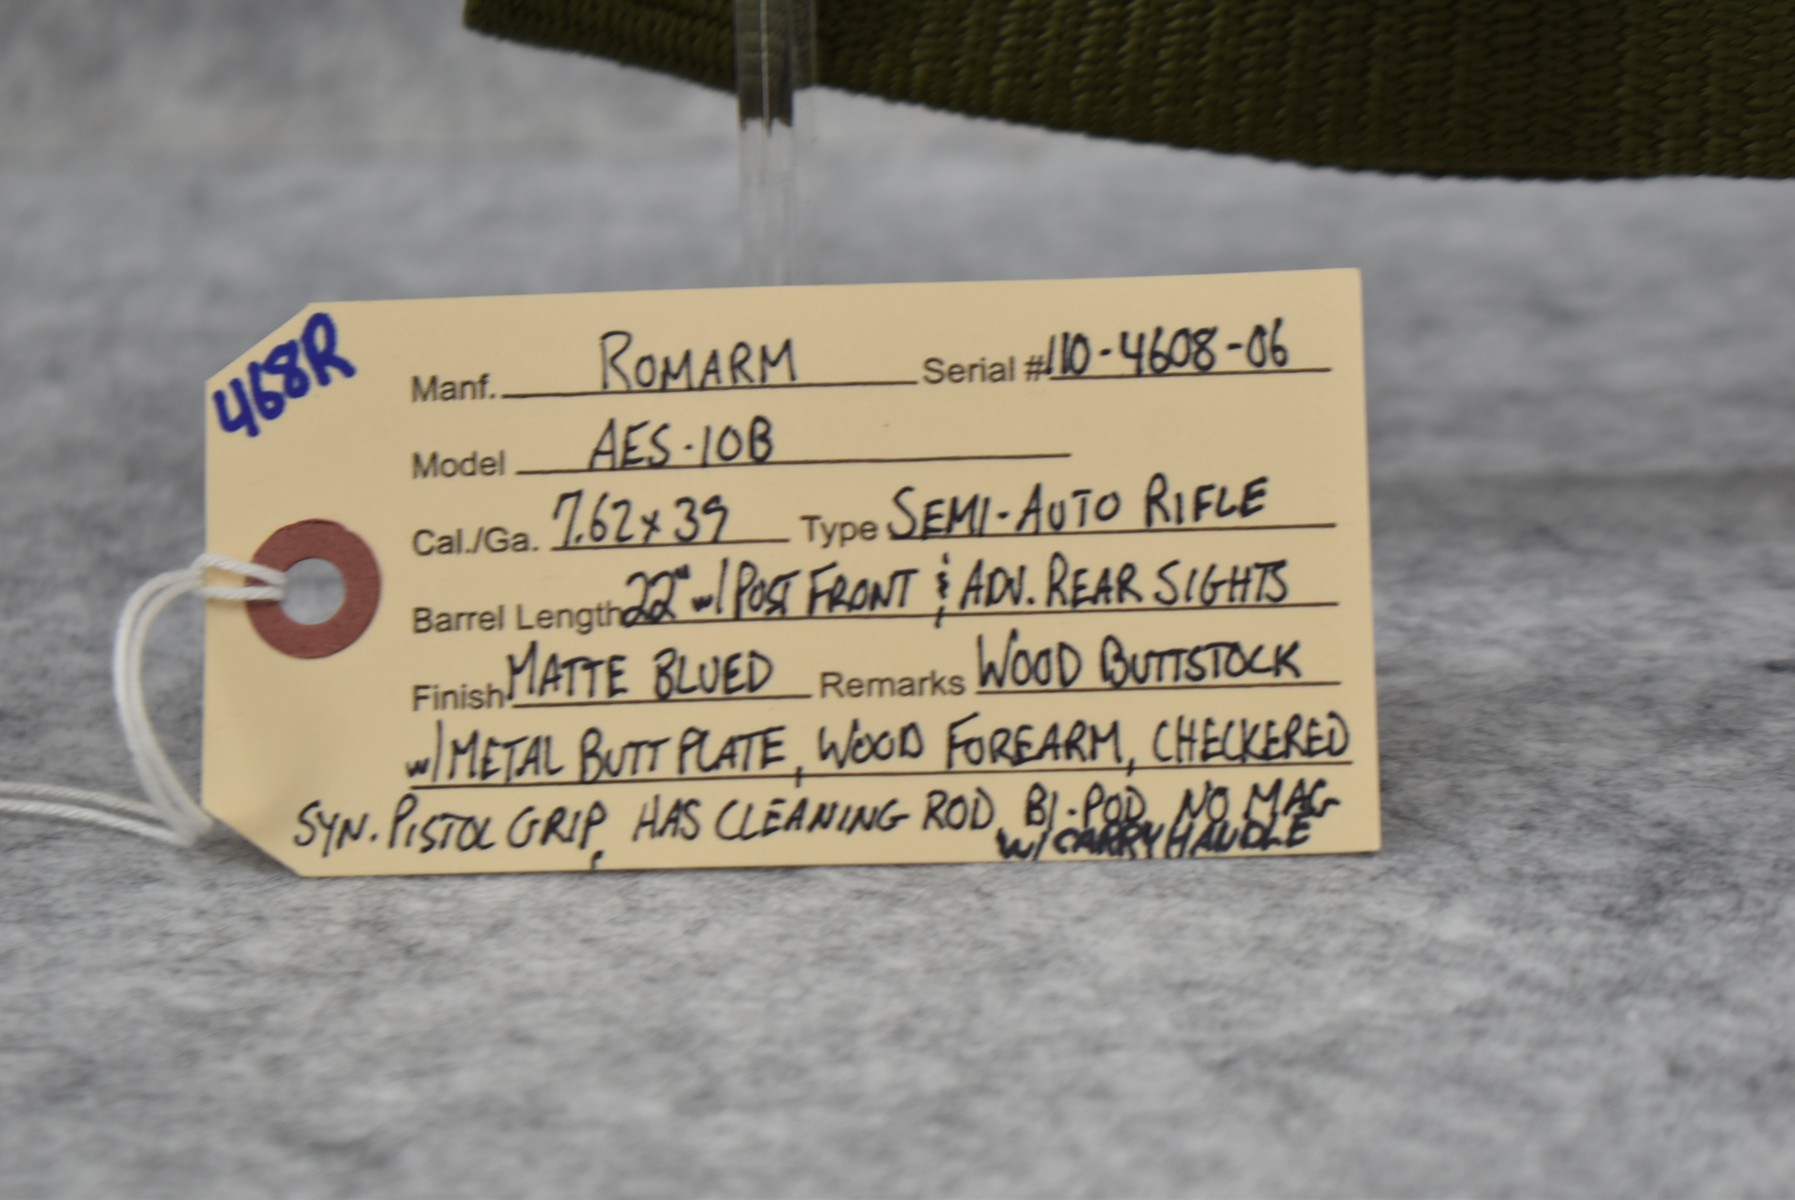 468R
Manf. ROMARM Serial # 110-4608-06
Model AES-10B
Cal./Ga. 7.62x39 Type SEMI-AUTO RIFLE
Barrel Length 22" w/ POST FRONT & ADV. REAR SIGHTS
Finish MATTE BLUED Remarks WOOD BUTTSTOCK
w/ METAL BUTT PLATE, WOOD FOREARM, CHECKERED
SYN. PISTOL GRIP, HAS CLEANING ROD BI-POD NO MAG
w/ CARRY HANDLE